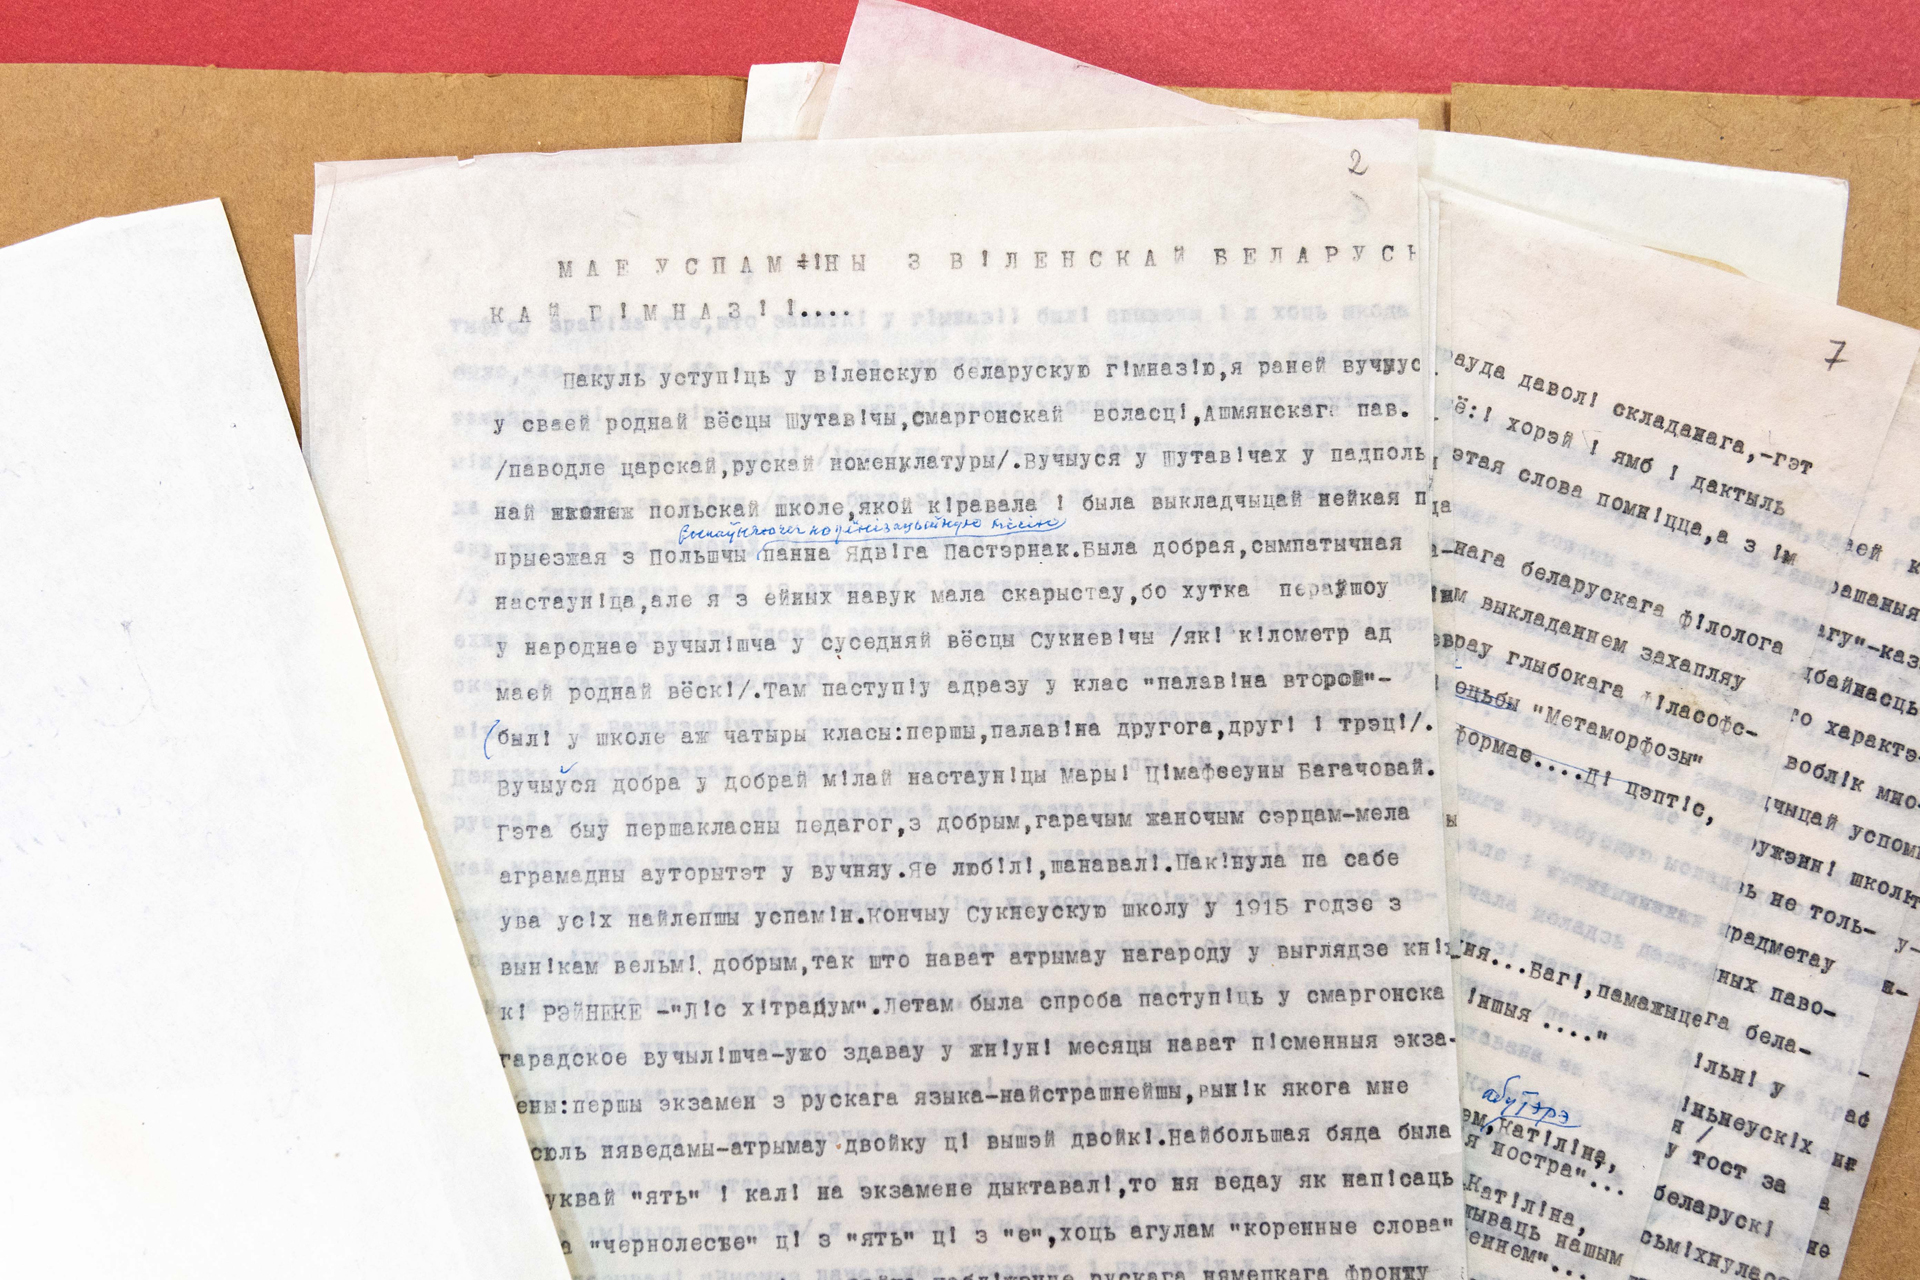 2
МАЕ УСПАМІНЫ З ВІЛЕНСКАЙ БЕЛАРУСЬ
КАЙ ГІМНАЗІІ....
Пакуль уступ!ць у в!ленскую беларускую г!мназ!ю,я раней вучыус
у сваей роднай вёсцы Шутав!чы,смаргонскай воласц!,Ашмянскаг пав.
/паводле царскай,рускай номенклатуры/.Вучыуся у Шутав!чах у падполь
най польскай школе,якой к!равала ! была выкладчыцай нейкая п
прыезжая з Польшчы панна Ядв!га Пастэрнак.Была добрая,сымпатычная
настаун!ца,але я з ейных навук мала скарыстау,бо хутка перайшоу
у народнае вучыл!шча у суседняй вёсцы Сукневічы /як! к!лометр ад
маей роднай вёск!/.Там паступ!у адразу у клас "палав!на второй"-
был! у школе аж чатыры класы:першы,палав!на другога,друг! ! трэц!/.
Вучыўся добра у добрай м!лай настаун!цы Мары! Ц!мафееуны Багачовай.
Гэта быу першакласны педагог,з добрым,гарачым жаночым сэрцам-мела
аграмадны ауторытэт у вучняу.Яе люб!л!,шанавал!.Пак!нула па сабе
ува ус!х найлепшы успам!н.Кончыу Сукнеускую школу у 1915 годзе з
вын!кам вельм! добрым,так што нават атрымау нагароду у выглядзе кн!ж
к! РЭЙНЕКЕ -"Л!с х!традум".Летам была спроба паступ!ць у смаргонска
гарадское вучыл!шча-ужо здавау у жн!ун! месяцы нават п!сменныя экза-
ены:першы экзамен з рускага языка-найстрашнейшы,вын!к якога мне
сюль няведамы-атрымау двойку ц! вышэй двойк!.Найбольшая бяда была
уквай "ять" ! кал! на экзамене дыктавал!,то ня ведау як нап!саць
а "чернолесье" ц! з "ять" ц! з "е",хоць агулам "коренные слова"
рускага нямецкага фронту
7
ауда давол! складанага,-гэт
ё:! хорэй ! ямб ! дактыль
этая слова помн!цца,а з !м
нага беларускага ф!лолога
м выкладаннем захапляу
врау глыбокага ф!ласофс-
оцьбы "Метаморфозы"
формае....Д! цэпт!с,
ня...Баг!,памажыце
!ншыя ...."
абутэрэ
ем,Кат!л!на,
я ностра"...
Кат!л!на,
жываць нашым
еннем"...
ей к
рашаныя
агу"-каз
дбайнасць
го характэ
вобл!к мно
чыцай успом
ужэнн! школь
ь не толь-
прадметау
ных паво-
га бела-
!льн! у
!ньнеуск!х
у тост за
беларуск!
сьм!хнулас